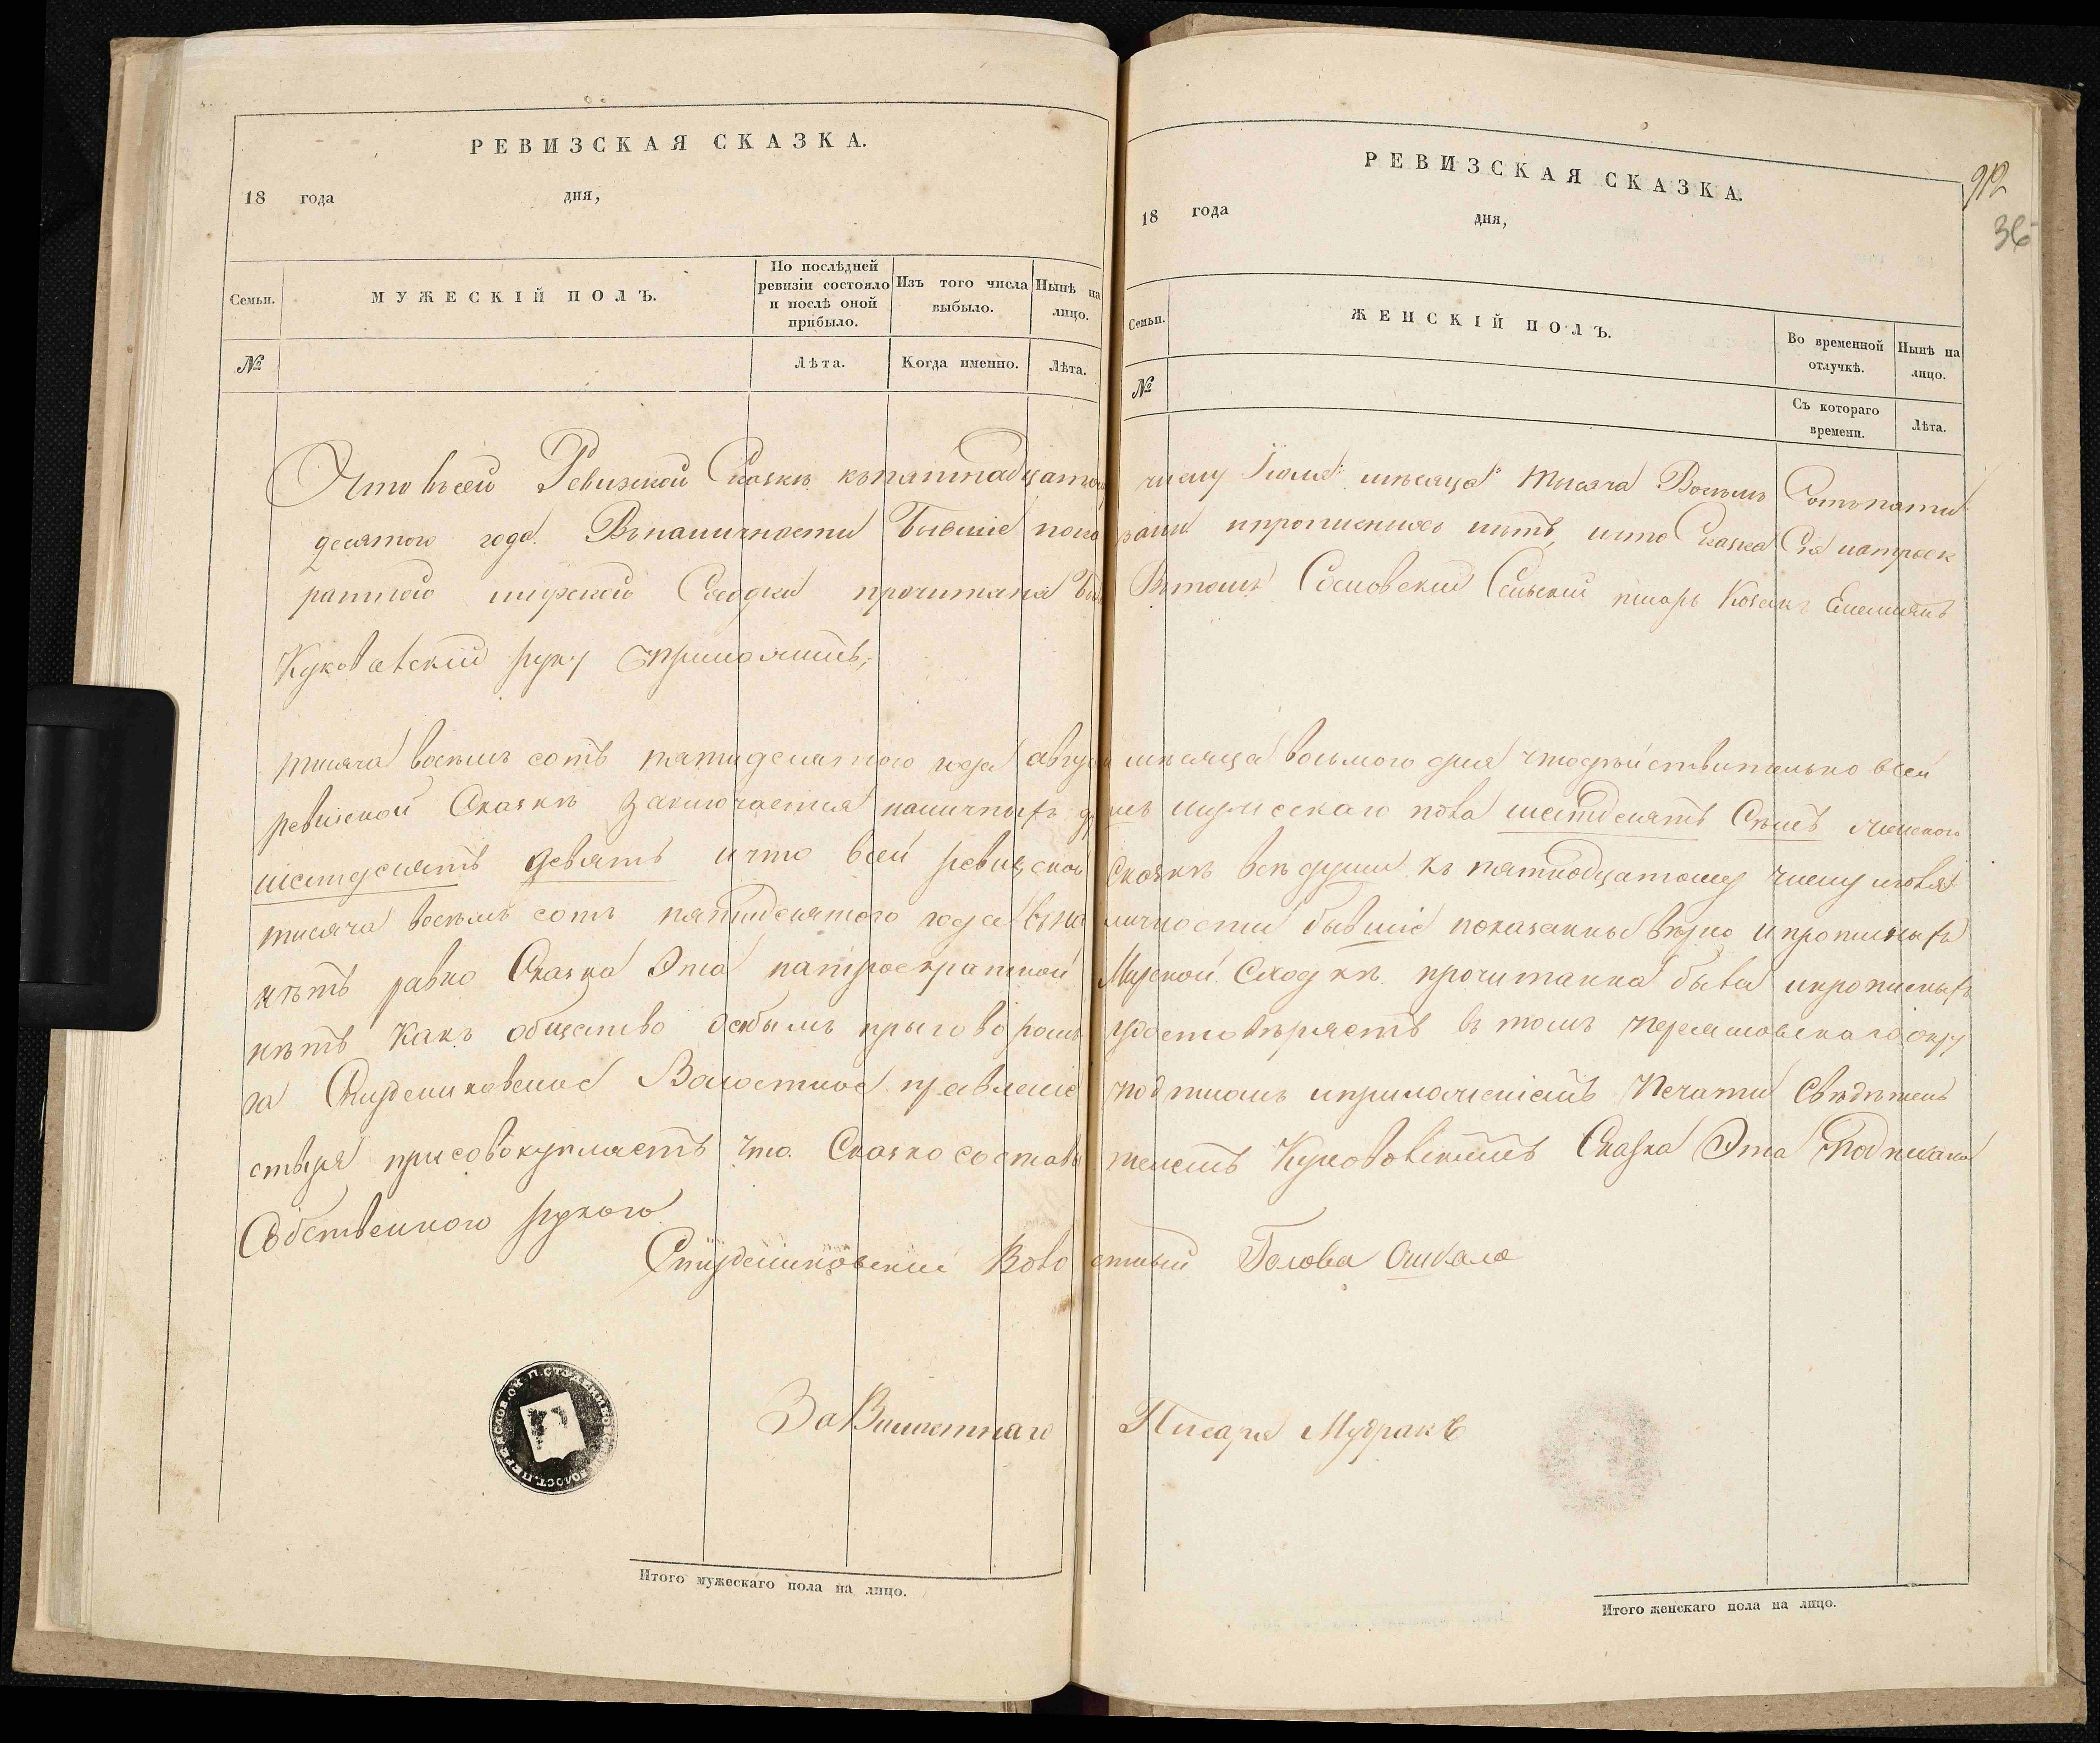 РЕВИЗСКАЯ СКАЗКА.
18 года дня,
Семьи.
МУЖЕСКІЙ ПОЛЪ.
По послѣдней ревизіи состояло и послѣ оной прибыло.
Изъ того числа выбыло.
Нынѣ на лицо.
№
Лѣта.
Когда именно.
Лѣта.
РЕВИЗСКАЯ СКАЗКА.
912
36
18 года дня,
Семьи.
ЖЕНСКІЙ ПОЛЪ.
Во временной отлучкѣ.
Нынѣ на лицо.
№
Съ котораго времени.
Лѣта.
Что Въсей Ревизской Сказкѣ къпятнадцатому числу Іюля мѣсяца тысяча Восемь Сотъпяти
десятого года Въналичности бывшіе пока зани ипрописнихъ нѣтъ, ичто Сказка Сія натроек
ратной мирской Сходки прочитана Была Втомъ Сельскій писарь Козакъ Емельянъ
руку приложилъ,
тысяча восемь сотъ пятидесятого года августа мѣсяца восьмого дня чтодѣйствительно всей
ревизской Сказкѣ Заключается наличныхъ душъ мужескаго пола шестдесятъ Семь женского
шестдесятъ девять ичто всей ревизской Сказкѣ всѣ души къ пятнодцатому числу іюля
тысяча восемь сотъ пятидесятого года въна личности бывшіе показанны вѣрно ипрописныхъ
нѣтъ равно Сказка Эта натроекратной Мирской Сходкѣ прочитанна была ипрописныхъ
нѣтъ какъ общество особымъ приговоромъ удостовѣряетъ въ томъ Переяславскаго окру
га Студениковское Волостное правленіе подписомъ иприложеніемъ Печати Свѣдѣтель
ствуя присовокупляетъ что Сказкосостави телемъ Сказка Эта Подписана
Собственного рукого
Студениковскій Воло стный Голова
П. СТУДЕНИКОВС. ВОЛОСТ. ПЕРЕЯСЛОВ. ОК.
За Волостнаго Писаря Мудракъ
Итого мужескаго пола на лицо.
Итого женскаго пола на лицо.